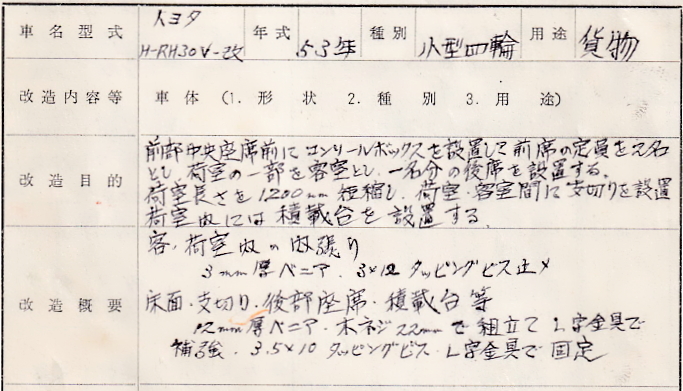 車名型式 トヨタ H-RH30V-改 年式 53年 種別 小型四輪 用途 貨物
改造内容等 車体 (1. 形状 2. 種別 3. 用途)
改造目的
前部中央座席前にコンソールボックスを設置して前席の定員を2名
とし、荷室の一部を客室とし、一名分の後席を設置する。
荷室長さを1,200mm短縮し、荷室・客室間に支切りを設置
荷室内には積載台を設置する
改造概要
客・荷室内の内張り
3mm厚ベニア．3×12 タッピングビス止メ
床面・支切り・後部座席・積載台等
12mm厚ベニア・木ネジ22mmで組立て L字金具で
補強．3.5×10 タッピングビス・L字金具で固定